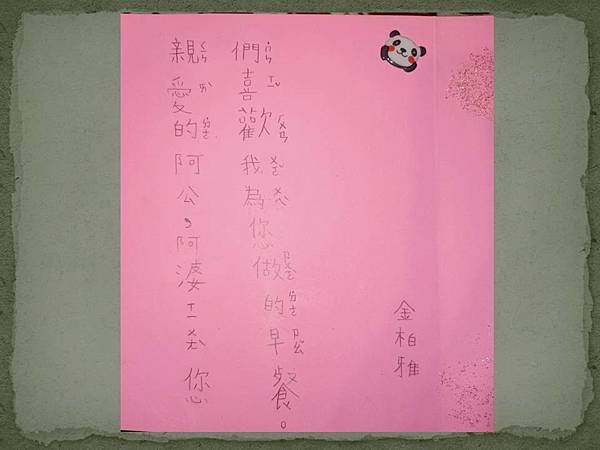 親愛的阿公,阿婆ㄒㄧㄨㄤˋ您
們喜歡我為您做的早餐。
金柏雅